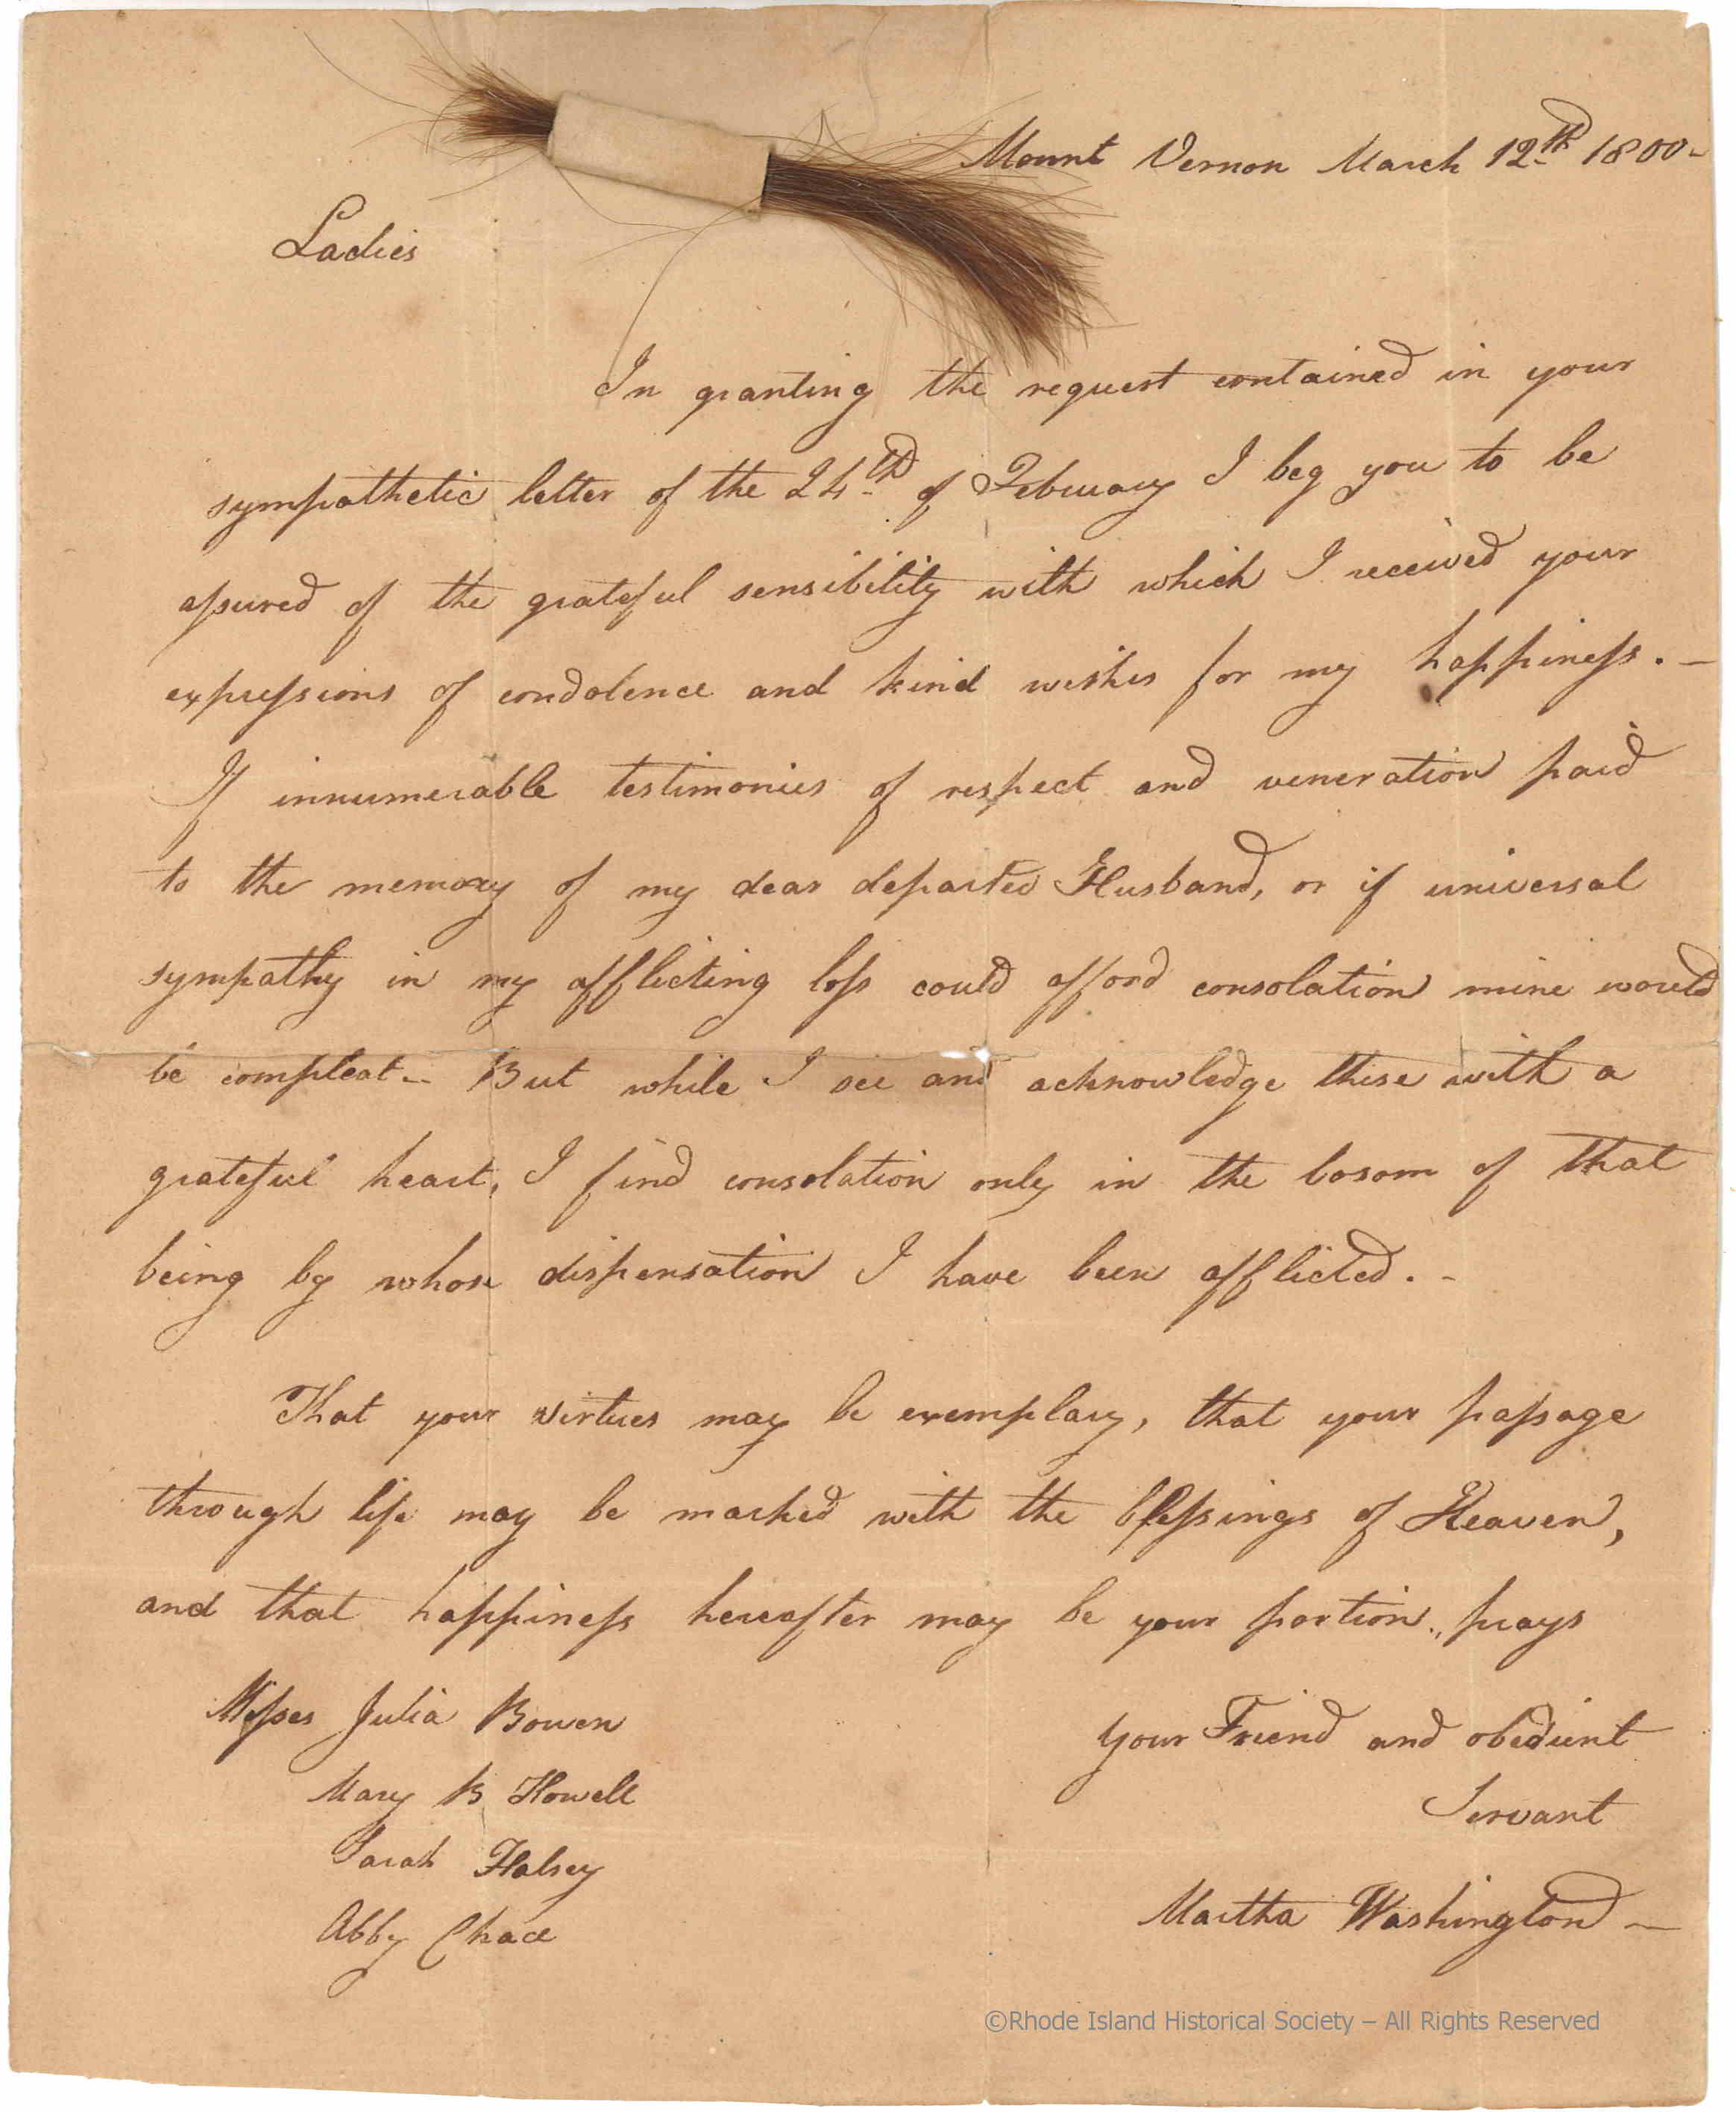 Mount Vernon March 12th 1800-
Ladies
In granting the request contained in your
sympathetic letter of the 24th of February I beg you to be
aſsured of the grateful sensibility with which I received your
expreſsions of condolence and kind wishes for my happineſs. —
If innumerable testimonies of respect and veneration paid
to the memory of my dear departed Husband, or if universal
sympathy in my afflicting loſs could afford consolation mine would
be compleat - But while I see and acknowledge these with a
grateful heart, I find consolation only in the bosom of that
being by whose dispensation I have been afflicted. -
That your virtues may be exemplary, that your paſsage
through life may be marked with the bleſsings of Heaven,
and that happineſs hereafter may be your portion, prays
Miſses Julia Bowen
your Friend and obedient
Mary B Howell
Servant
Sarah Halsey
Abby Chace
Martha Washington —
©Rhode Island Historical Society – All Rights Reserved